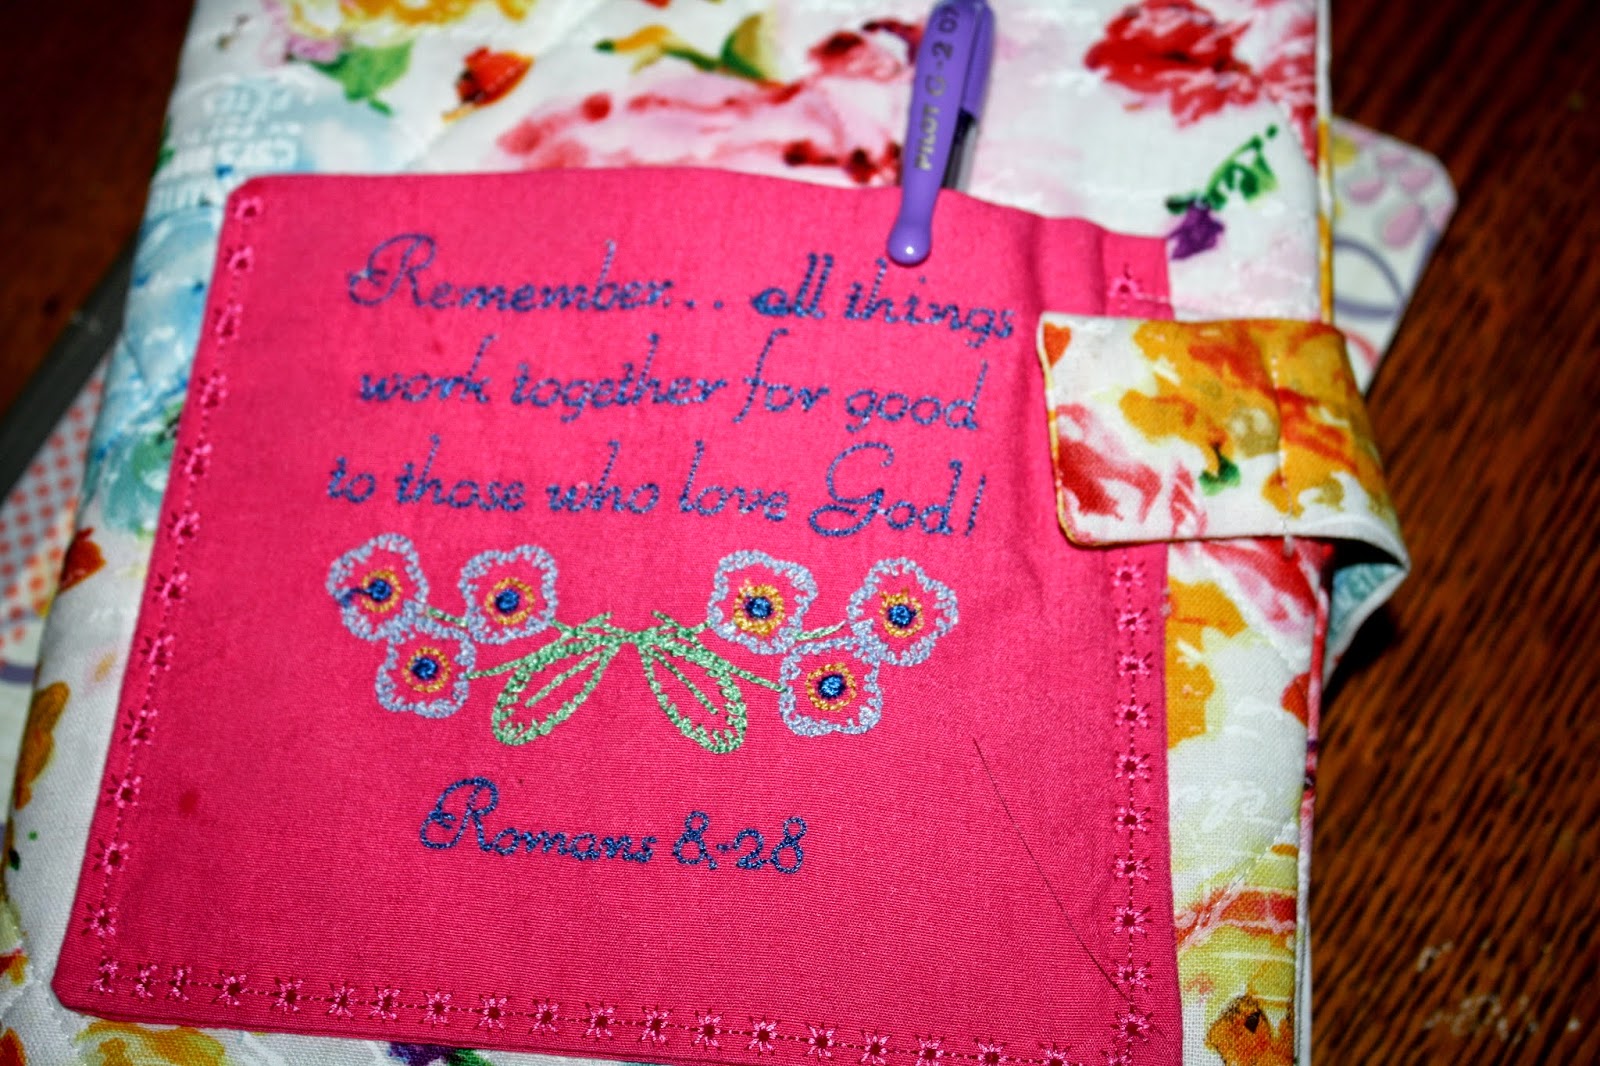 PILOT G-2 07
Remember... all things
work together for good
to those who love God!
Romans 8:28